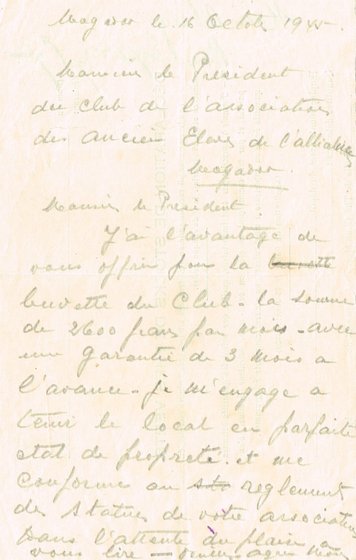 Mogador le 16 Octobre 19
Monsieur le President
du Club de l'association
des anciens Eleves de l'alliance
Mogador.
Monsieur le President
J'ai l'avantage de
vous offrir pour la
buvette du Club - la somme
de 2600 francs par mois - avec
une garantie de 3 mois a
l'avance - je m'engage a
tenir le local en parfaite
etat de propreté. et me
conformer au reglement
des Statues de votre association
Dans l'attente du plaisir
vous lire -